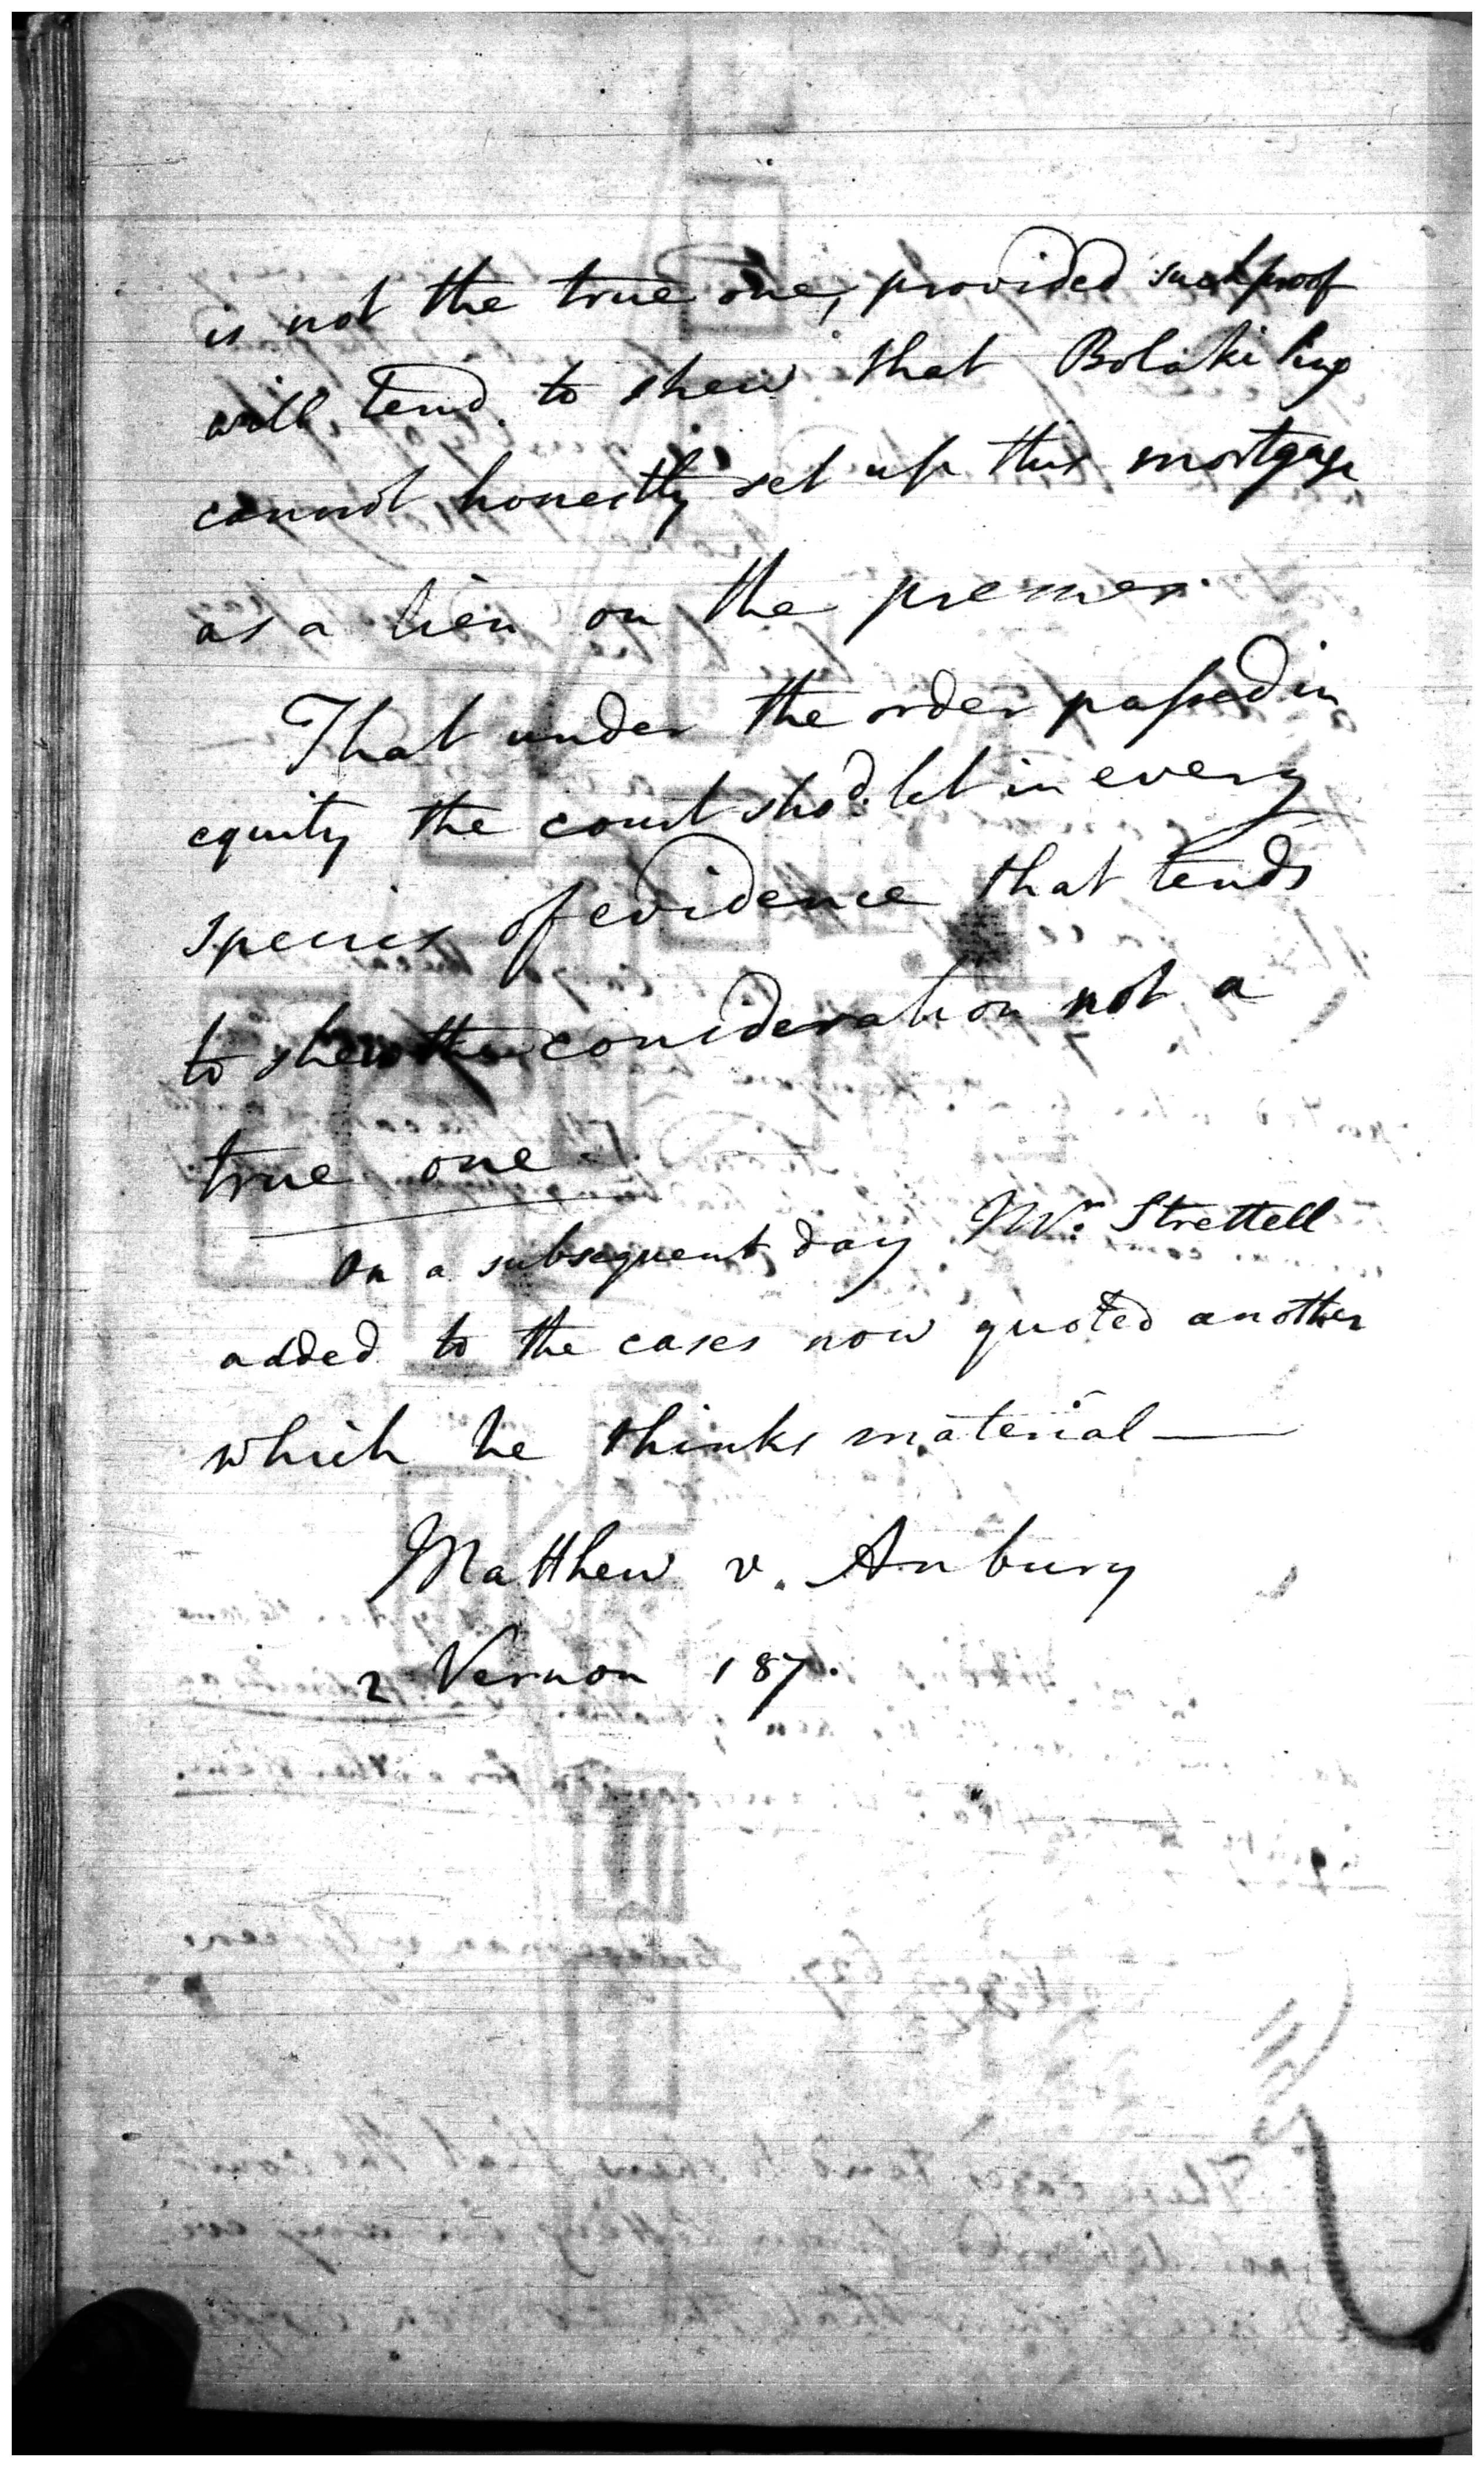 is not the true one, provided such proof
will tend to shew that Bolaki Sing
cannot honestly set up this mortgage
as a lien on the premes.
That under the order passed in
equity the court shod. let in every
species of evidence that tends
to shew the consideration not a
true one.
On a subsequent day Mr. Strettell
added to the cases now quoted another
which he thinks material —
Matthew v. Anbury
2 Vernon 187.